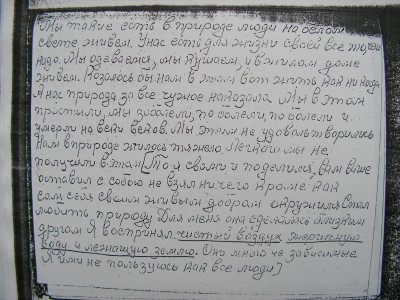 Мы такие есть в природе люди на белом
свете живем. У нас есть для жизни своей все то чем
надо. Мы одеваемся, мы кушаем, и в жилом доме
живем. Казалось бы нам в этом вот жить как никогда
А нас природа за все чужое наказала Мы в этом
простыли, мы заболели, поболели, поболели и
умерли на веки веков. Мы этим не удовлетворились
Нам в природе жилось тяжело. Легкого мы не
получили в этом То я с вами и поделился, вам выше
оставил с собою не взял ничего кроме как
сам себя своим живым добром окружил. Стал
любить природу Для меня она сделалась близким
другом Я воспринял чистый воздух энергичную
воду и лежащую землю. Они мною не зависимые
Я ими не пользуюсь как все люди)